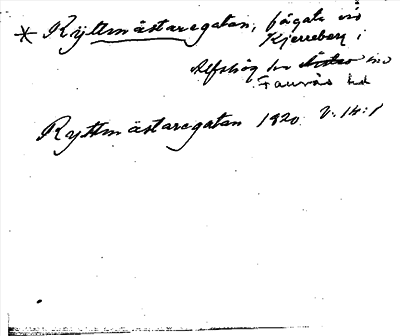 * Ryttmästaregatan, fägata vid
Kjerreberg i
Alfshög sn Årstad
Faurås hd
Ryttmästaregatan 1820. V:14:1